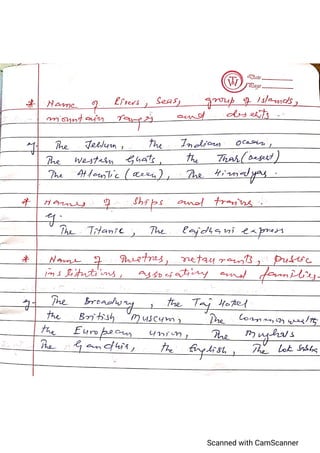 TW
Date
Page
* Name of Rivers, Seas, group of Islands,
mountain ranges and deserts.
eg. The Jehlum, the Indian ocean,
The Western Ghats, the Thar (Desert)
The Atlantic (ocean), The Himalyas.
* Names of Ships and trains.
eg.
The Titanic, The Rajdhani express
* Name of Theatres, restaurants, public
institutions, associations and families.
eg- The Broadway, the Taj Hotel
the British Museum, The Commonwealth
the European union, The Mughals
The Gandhis, the English, The Lok Sabha
Scanned with CamScanner